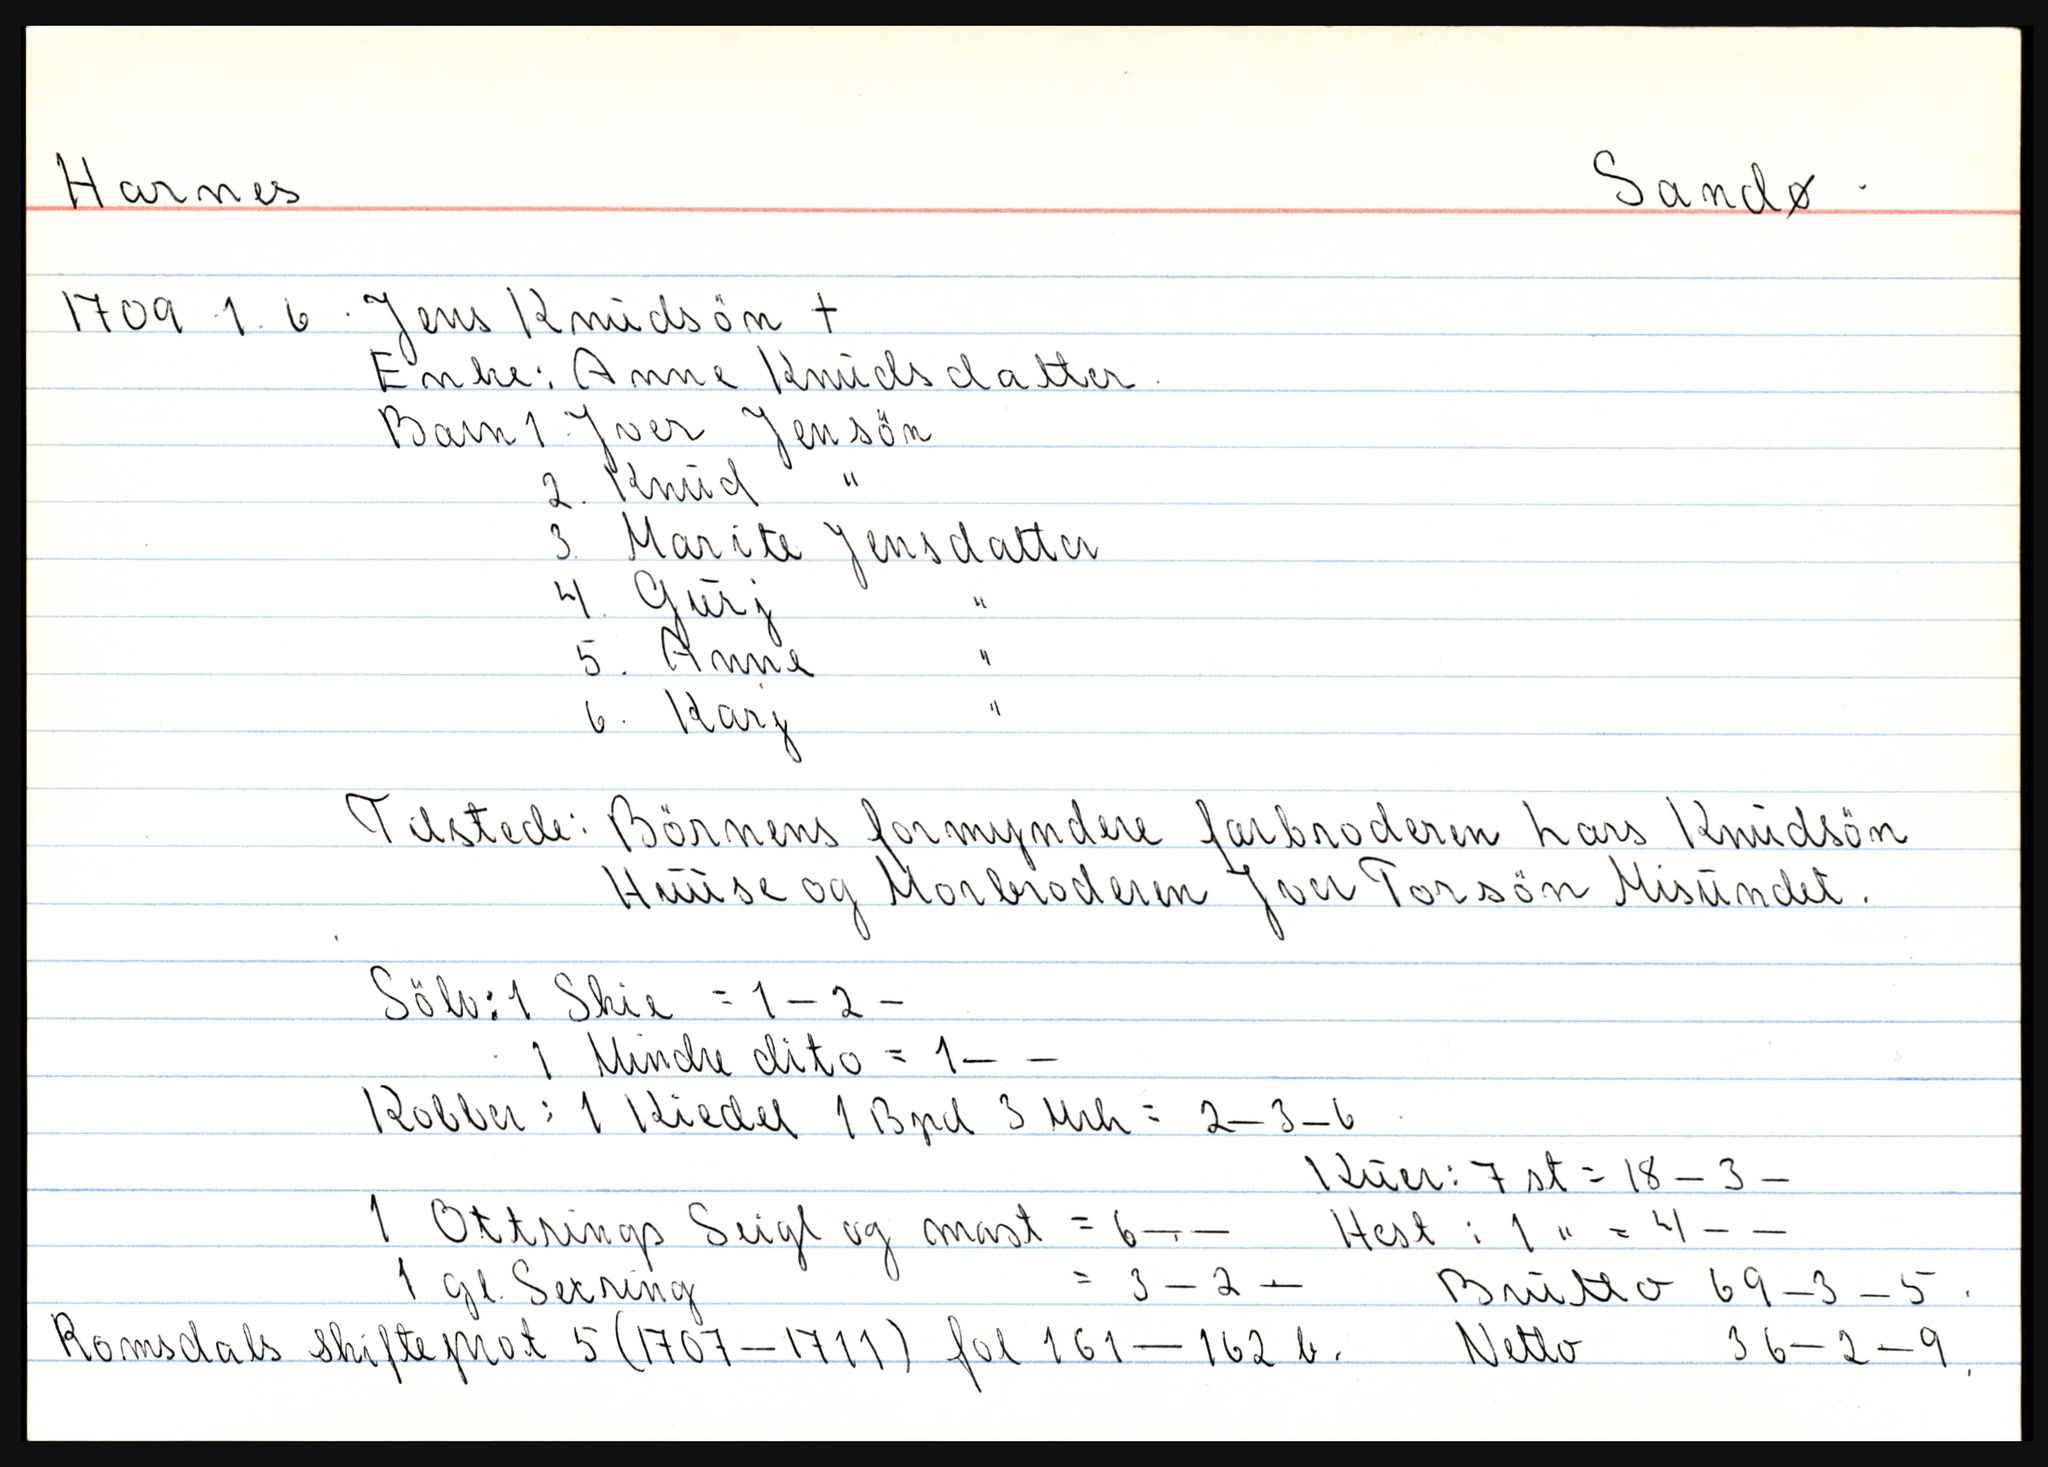 Harnes Sandø.
1709 1. 6. Jens Knudsön +
Enke: Anne Knudsdatter.
Barn 1. Jver Jensön
2. Knud "
3. Marite Jensdatter
4. Gurj "
5. Anne "
6. Karj "
Tilstede: Börnens formyndere farbroderen Lars Knudsön
Huuse og Morbroderen Jver Torsön Misundet.
Sölv: 1 Skie = 1 – 2 –
1 Mindre dito = 1 – –
Kobber: 1 Kiedel 1 Bpd 3 Mrk = 2 – 3 – 6
Kuer: 7 st = 18 – 3 –
1 Ottrings Seigl og mast = 6 – – Hest: 1 " = 4 – –
1 gl. Sexring = 3 – 2 – Brutto 69 – 3 – 5.
Romsdals skifteprot 5 (1707 – 1711) fol 161 – 162 b. Netto 36 – 2 – 9.